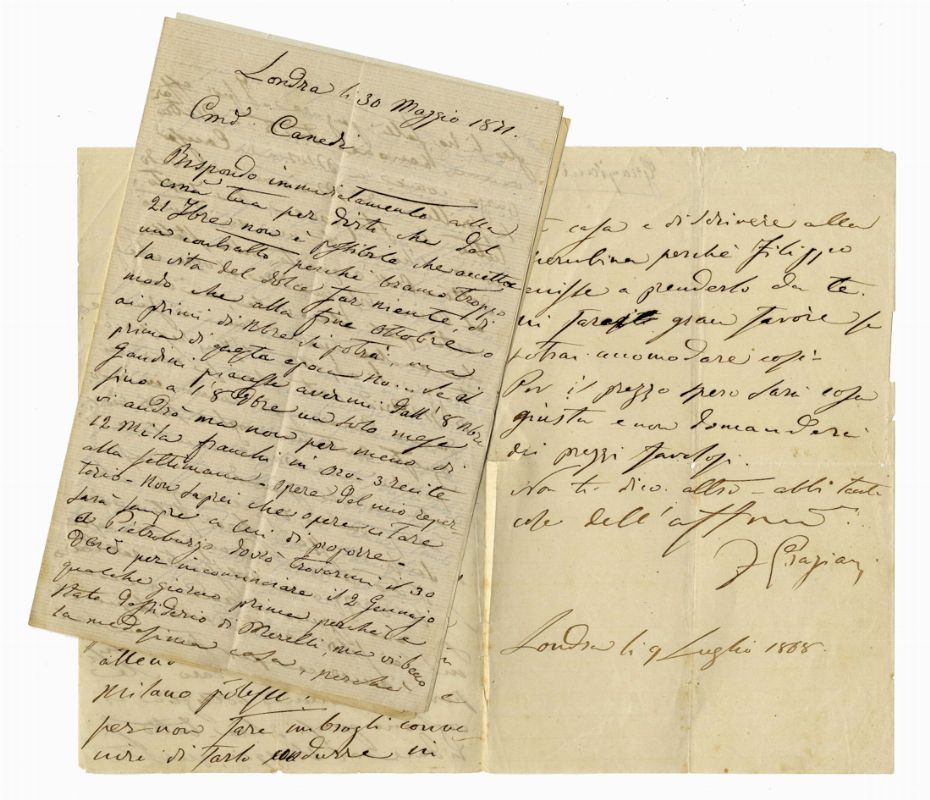 Londra li 30 Maggio 1871.
Cmō. Canedi
Rispondo immediatamente alla
cmā tua per dirti che dal
21 7bre non è possibile che accetta
un contratto perchè bramo troppo
la vita del dolce far niente, di
modo che alla fine ottobre o
ai primi di 9bre si potrà, ma
prima di questa epoca no... Se il
Gandini piacesse avermi dall' 8 9bre
fino a l' 8 Xbre un solo mese
vi andrò ma non per meno di
12 mila franchi in oro - 3 recite
alla settimana - opere del mio reper-
torio - Non saprei che opere citare
sarà sempre a lui di proporre -
A Pietroburgo dovrò trovarmi il 30
Xbre per incominciare il 2 Gennajo
qualche giorno prima perchè è
stato desiderio di Merelli, ma vi
la medesima cosa, perchè
casa e di scrivere alla
Cherubina perchè Filippo
venisse a prenderlo da te.
mi farai gran favore se
potrai accomodare così -
Per il prezzo spero sarà cosa
giusta e non domanderà
dei prezzi favolosi.
Non ti dico altro - abbi tanti
cose dell' affmō
F Graziani
Londra li 9 Luglio 1868.
Milano
per non fare imbrogli
di farlo condurre in
Graziani